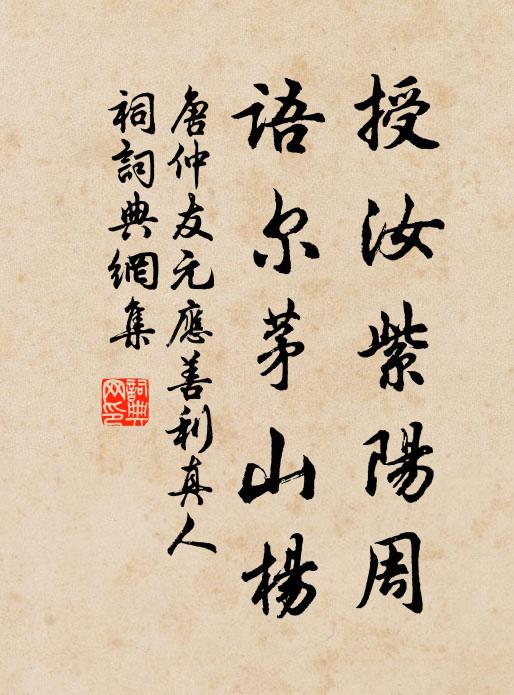 授汝紫陽周
語尔茅山楊
唐仲友元應善利真人
祠詞典網集
詞典网印